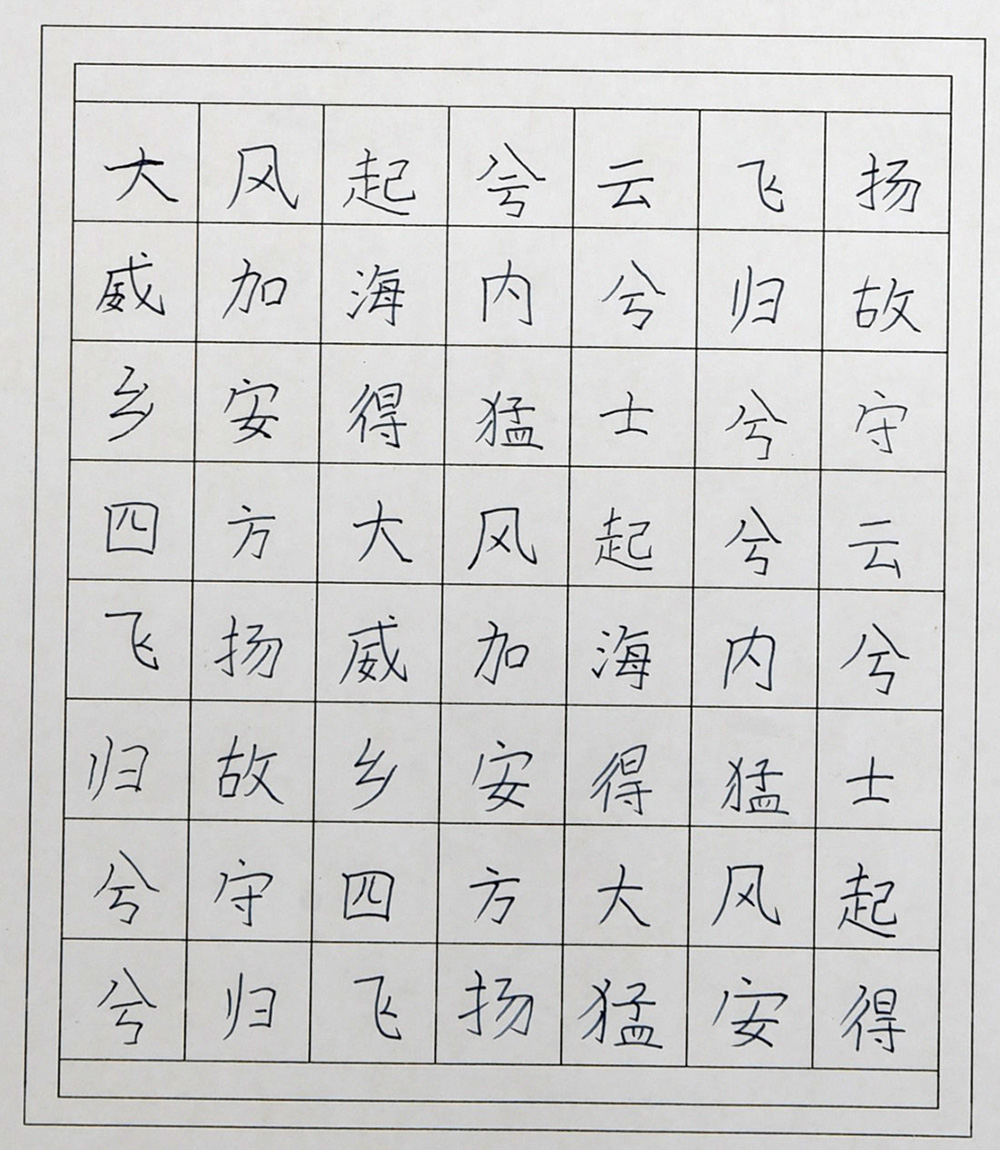 大风起兮云飞扬
威加海内兮归故
乡安得猛士兮守
四方大风起兮云
飞扬威加海内兮
归故乡安得猛士
兮守四方大风起
兮归飞扬猛安得